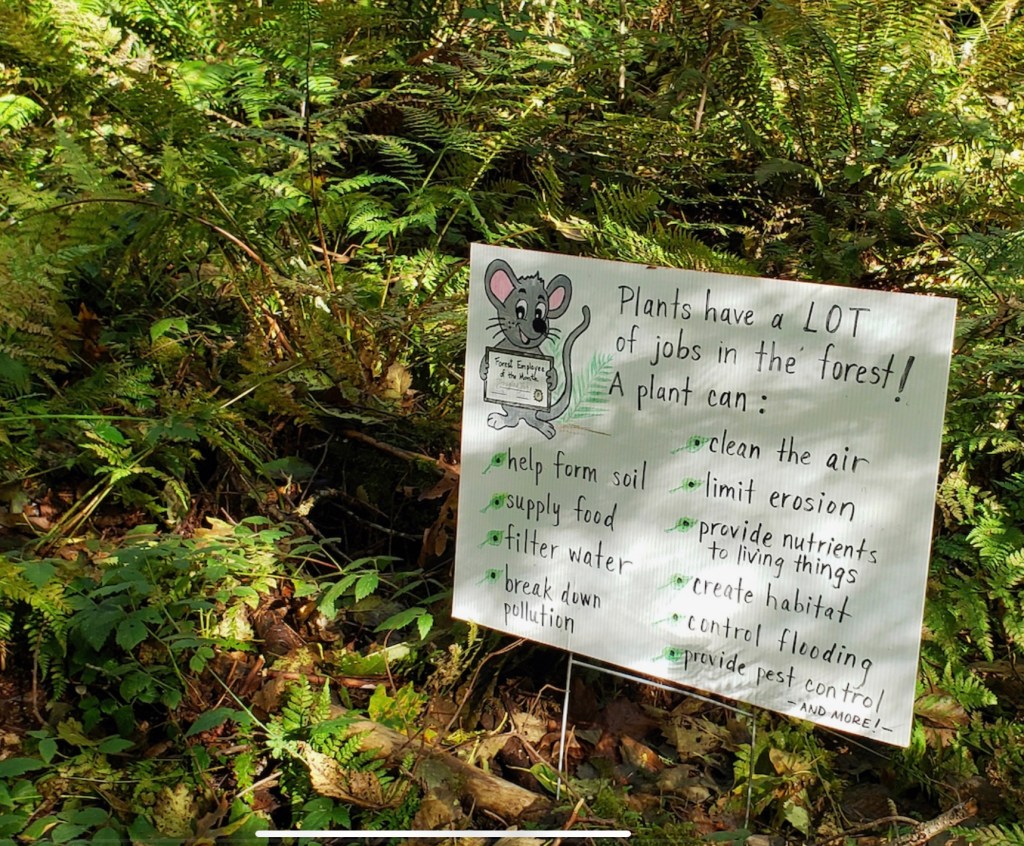 Plants have a LOT
of jobs in the forest!
A plant can:
Forest Employee
of the Month
help form soil
supply food
filter water
break down
pollution
clean the air
limit erosion
provide nutrients
to living things
create habitat
control flooding
provide pest control
-AND MORE!-